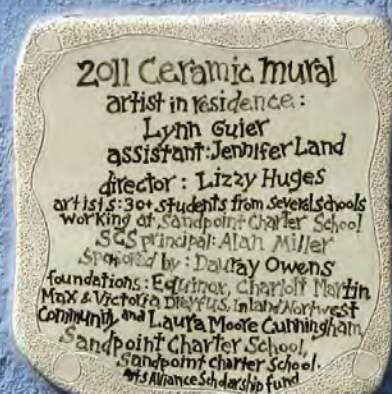 2011 Ceramic mural
artist in residence:
Lynn Guier
assistant: Jennifer Land
director: Lizzy Huges
artists: 30+ students from several schools
working at Sandpoint Charter School
SCS principal: Alan Miller
Sponsored by: Dauray Owens
foundations: Equinox, Charlott Martin
Max & Victoria Dreyfus, Inland Nortwest
Community, and Laura Moore Cunningham,
Sandpoint Charter School,
Sandpoint charter School.
Arts Alliance Scholarship fund